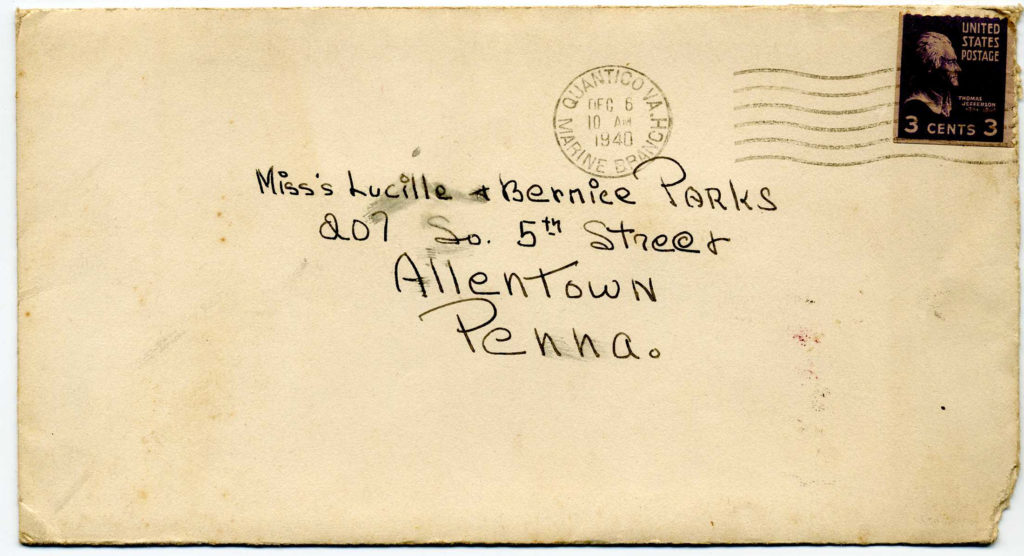 UNITED
STATES
POSTAGE
THOMAS
JEFFERSON
3 CENTS 3
QUANTICO VA.
DEC 6
10 AM
1940
MARINE BRANCH
Miss's Lucille + Bernice PARKS
207 So. 5th Street
AllenTown
Penna.